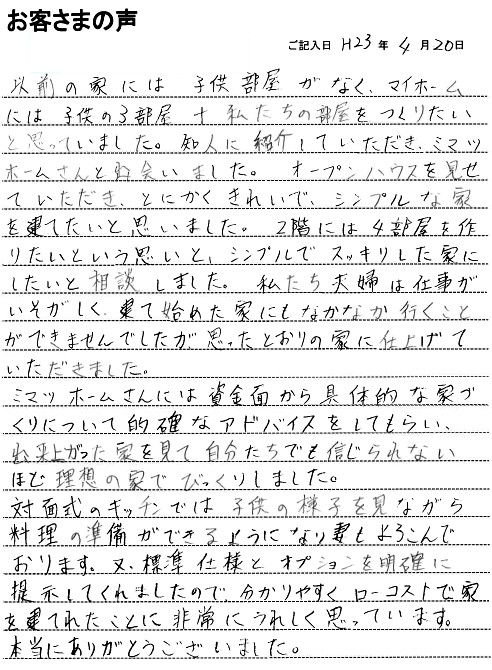 お客さまの声
ご記入日 H23 年 4 月 20 日
以前の家には 子供部屋がなく、マイホーム
には 子供の3部屋 + 私たちの部屋をつくりたい
と思っていました。知人に紹介していただき、ミマツ
ホームさんと出会いました。 オープンハウスを見せ
ていただき、とにかくきれいで、シンプルな家
を建てたいと思いました。2階には4部屋を作
りたいという思いと、シンプルでスッキリした家に
したいと相談しました。 私たち夫婦は仕事が
いそがしく、建て始めた家にもなかなか行くこと
ができませんでしたが、思ったとおりの家に仕上げて
いただきました。
ミマツホームさんには資金面から具体的な家づ
くりについて的確なアドバイスをしてもらい、
出来上がった家を見て自分たちでも信じられない
ほど理想の家でびっくりしました。
対面式のキッチンでは子供の様子を見ながら
料理の準備ができるようになり妻もよろこんで
おります。又、標準仕様とオプションを明確に
提示してくれましたので、分かりやすくローコストで家
を建てれたことに非常にうれしく思っています。
本当にありがとうございました。